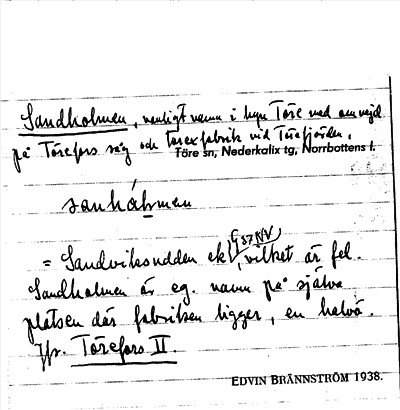 Sandholmen, vanligt namn i byn Töre med omnejd
på Törefors såg och torexfabrik vid Törefjärden.
Töre sn, Nederkalix tg, Norrbottens l.
sanhå̱lmen
G 57 NV
= Sandviksudden ek, vilket är fel.
Sandholmen är eg. namn på själva
platsen där fabriken ligger, en halvö.
Jfr. Törefors II.
EDVIN BRÄNNSTRÖM 1938.